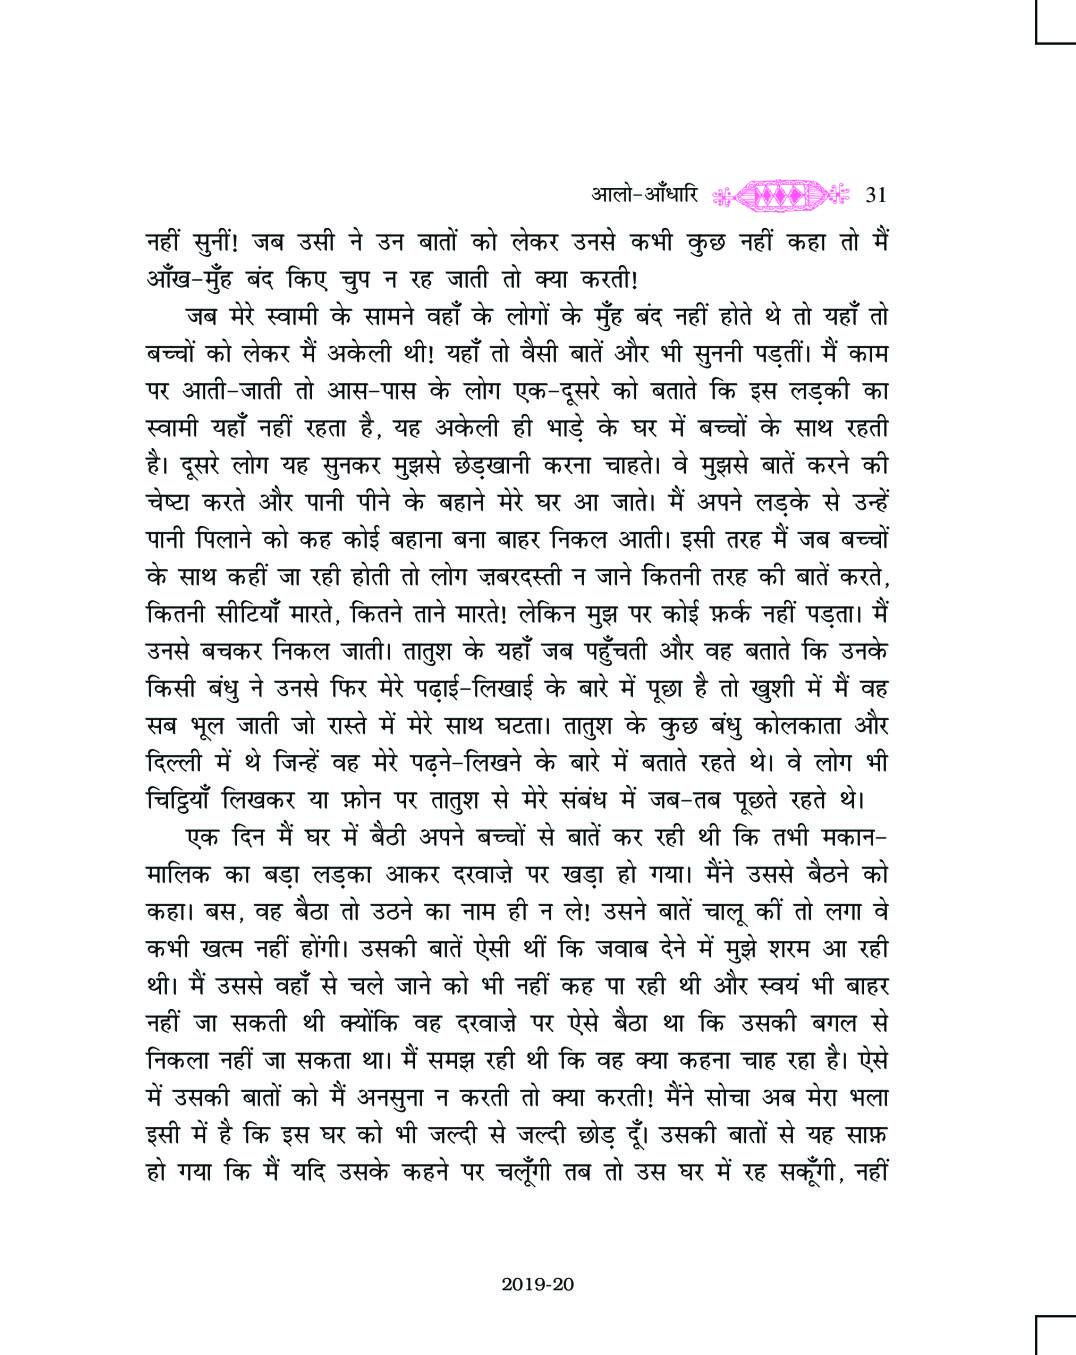 आलो-आँधारि 31
नहीं सुनीं! जब उसी ने उन बातों को लेकर उनसे कभी कुछ नहीं कहा तो मैं
आँख-मुँह बंद किए चुप न रह जाती तो क्या करती!
जब मेरे स्वामी के सामने वहाँ के लोगों के मुँह बंद नहीं होते थे तो यहाँ तो
बच्चों को लेकर मैं अकेली थी! यहाँ तो वैसी बातें और भी सुननी पड़तीं। मैं काम
पर आती-जाती तो आस-पास के लोग एक-दूसरे को बताते कि इस लड़की का
स्वामी यहाँ नहीं रहता है, यह अकेली ही भाड़े के घर में बच्चों के साथ रहती
है। दूसरे लोग यह सुनकर मुझसे छेड़खानी करना चाहते। वे मुझसे बातें करने की
चेष्टा करते और पानी पीने के बहाने मेरे घर आ जाते। मैं अपने लड़के से उन्हें
पानी पिलाने को कह कोई बहाना बना बाहर निकल आती। इसी तरह मैं जब बच्चों
के साथ कहीं जा रही होती तो लोग ज़बरदस्ती न जाने कितनी तरह की बातें करते,
कितनी सीटियाँ मारते, कितने ताने मारते! लेकिन मुझ पर कोई फ़र्क नहीं पड़ता। मैं
उनसे बचकर निकल जाती। तातुश के यहाँ जब पहुँचती और वह बताते कि उनके
किसी बंधु ने उनसे फिर मेरे पढ़ाई-लिखाई के बारे में पूछा है तो खुशी में मैं वह
सब भूल जाती जो रास्ते में मेरे साथ घटता। तातुश के कुछ बंधु कोलकाता और
दिल्ली में थे जिन्हें वह मेरे पढ़ने-लिखने के बारे में बताते रहते थे। वे लोग भी
चिट्ठियाँ लिखकर या फ़ोन पर तातुश से मेरे संबंध में जब-तब पूछते रहते थे।
एक दिन मैं घर में बैठी अपने बच्चों से बातें कर रही थी कि तभी मकान-
मालिक का बड़ा लड़का आकर दरवाज़े पर खड़ा हो गया। मैंने उससे बैठने को
कहा। बस, वह बैठा तो उठने का नाम ही न ले! उसने बातें चालू कीं तो लगा वे
कभी खत्म नहीं होंगी। उसकी बातें ऐसी थीं कि जवाब देने में मुझे शरम आ रही
थी। मैं उससे वहाँ से चले जाने को भी नहीं कह पा रही थी और स्वयं भी बाहर
नहीं जा सकती थी क्योंकि वह दरवाज़े पर ऐसे बैठा था कि उसकी बगल से
निकला नहीं जा सकता था। मैं समझ रही थी कि वह क्या कहना चाह रहा है। ऐसे
में उसकी बातों को मैं अनसुना न करती तो क्या करती! मैंने सोचा अब मेरा भला
इसी में है कि इस घर को भी जल्दी से जल्दी छोड़ दूँ। उसकी बातों से यह साफ़
हो गया कि मैं यदि उसके कहने पर चलूँगी तब तो उस घर में रह सकूँगी, नहीं
2019-20